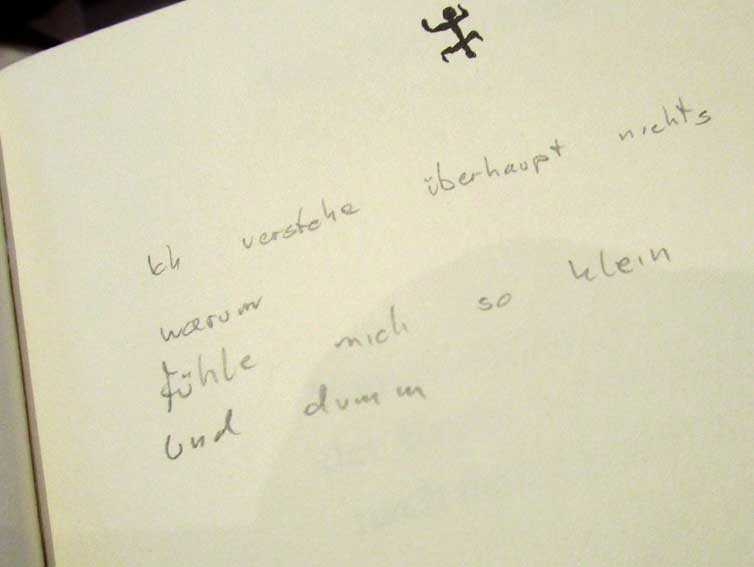 Ich verstehe überhaupt nichts
warum
fühle mich so klein
und dumm